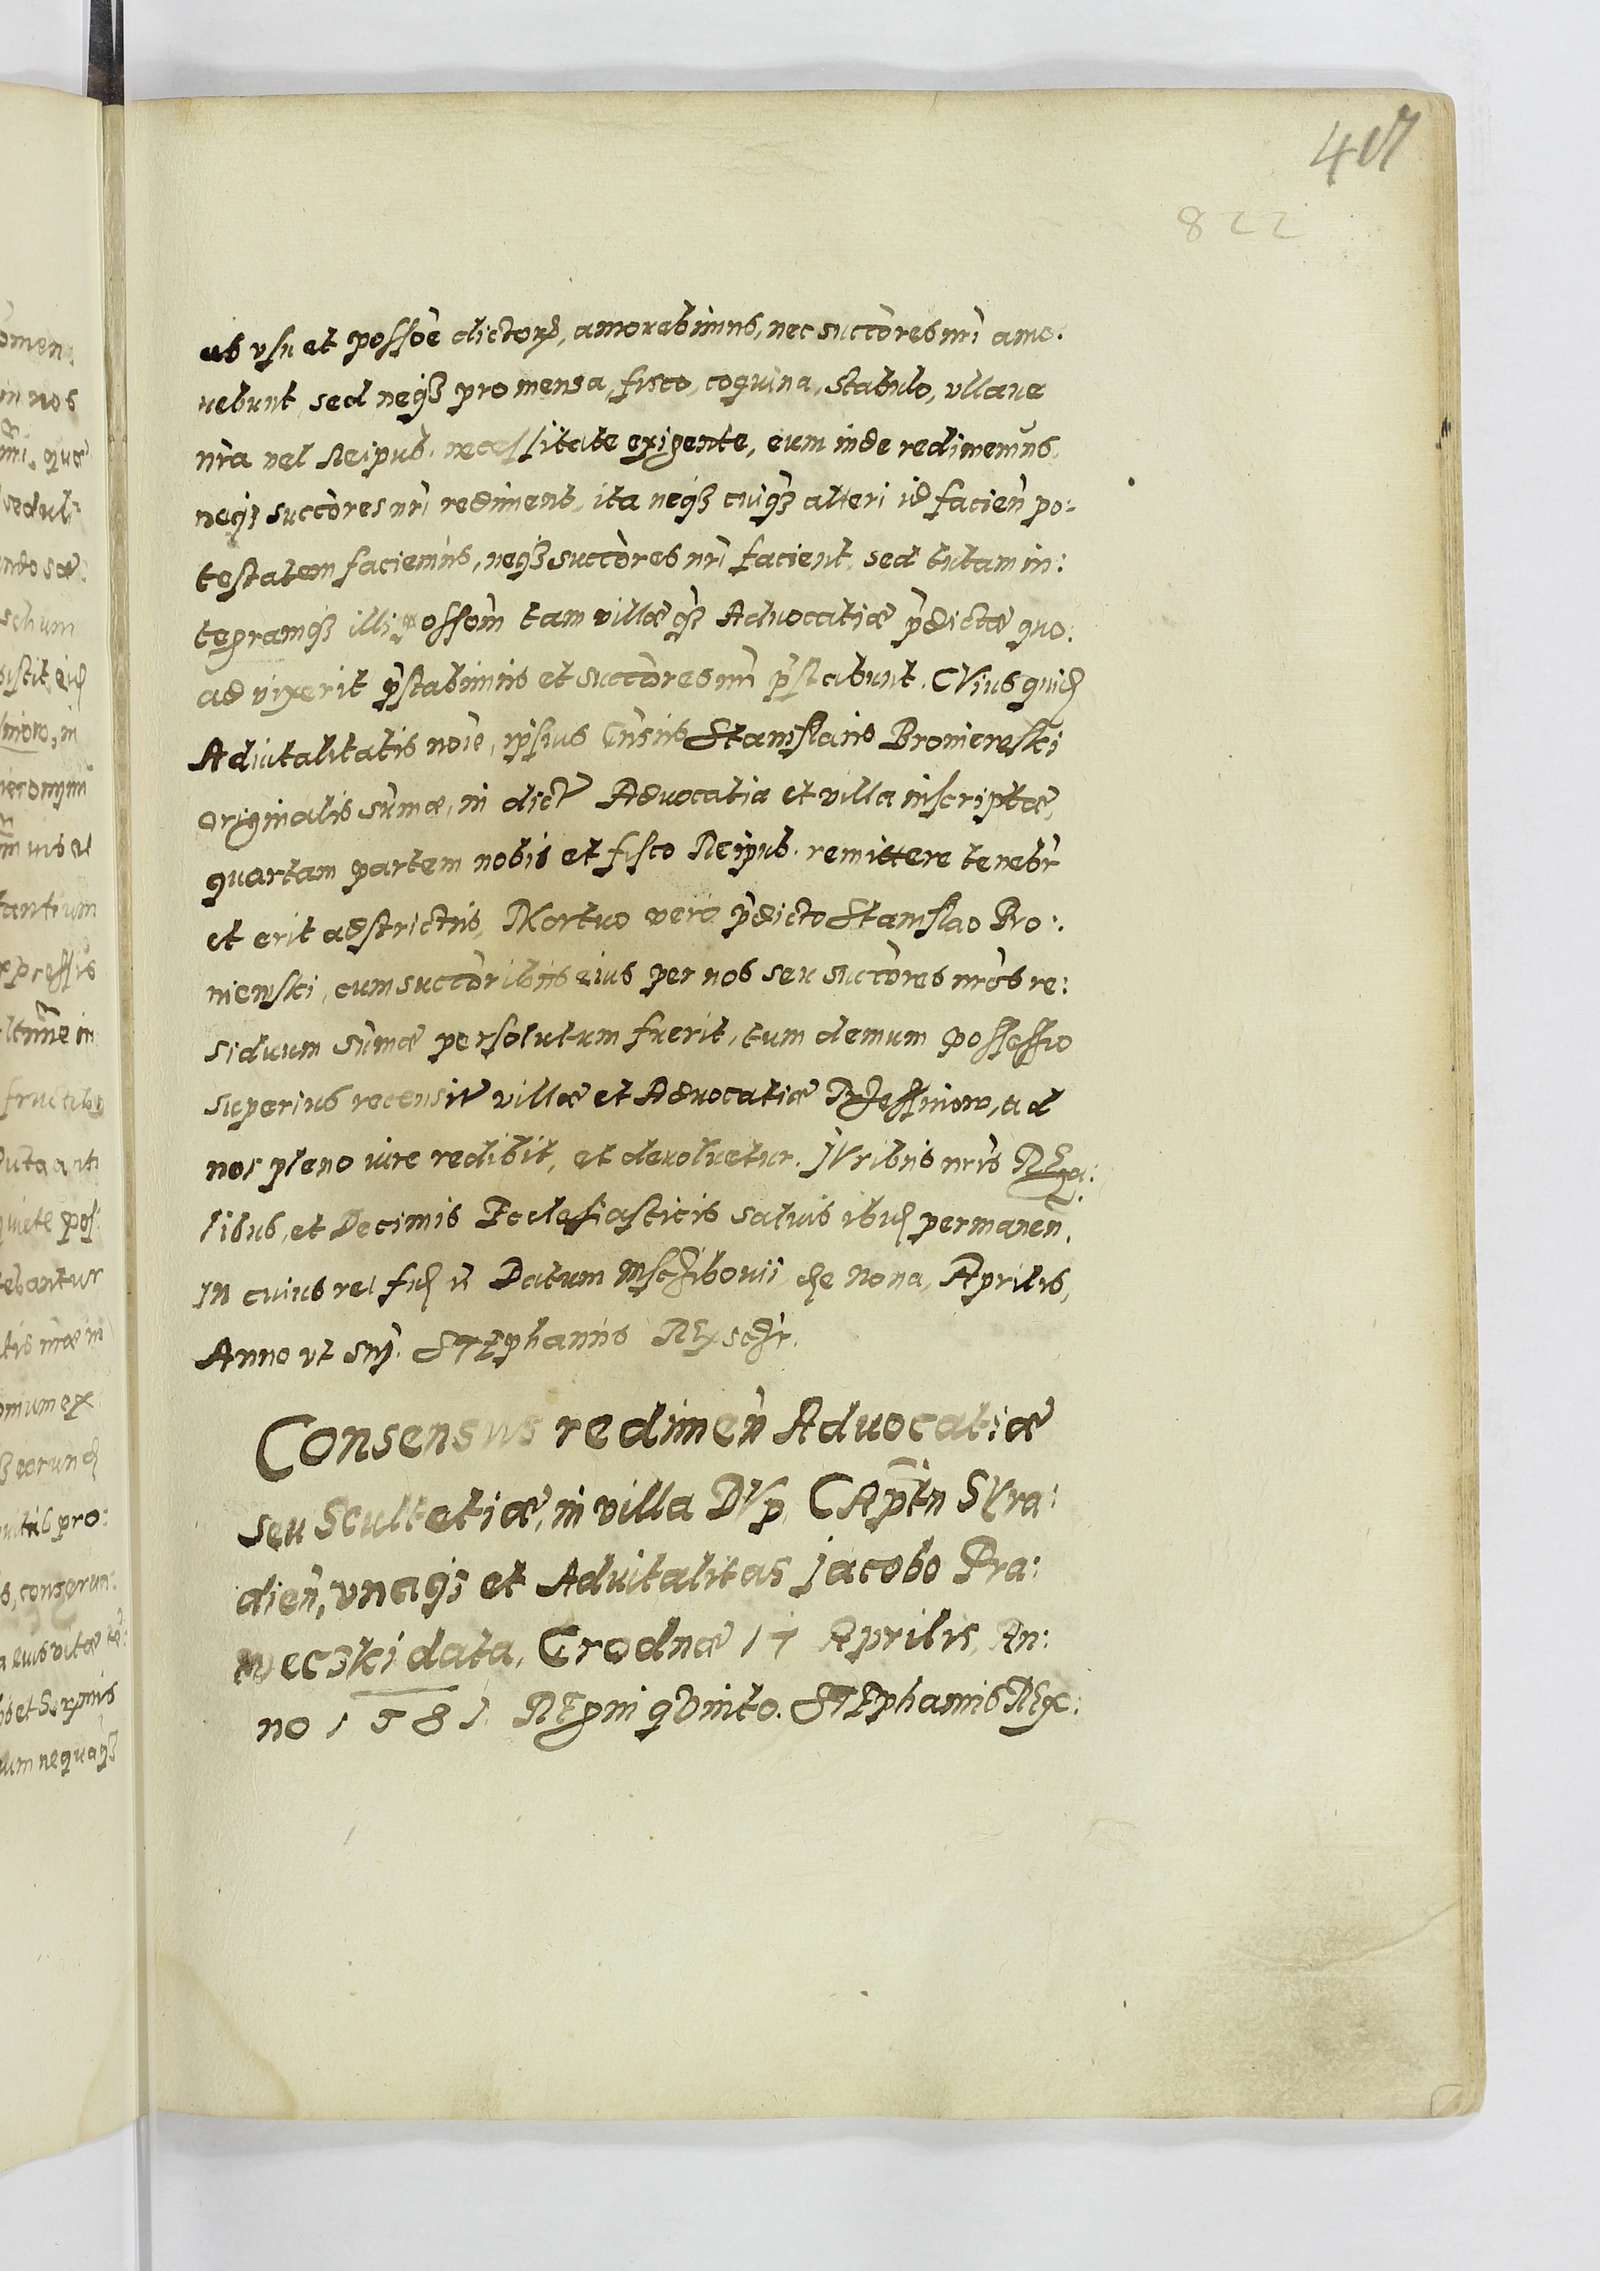 407
822
ab vsu et possõe dictorꝝ, amouebimus, nec succõres nr̃i amo:
uebunt, sed neqꝫ pro mensa, fisco, coquina, stabulo, vllaue
nr̃a vel Reipub. necessitate exigente, eum inde redimemus,
neqꝫ succõres nr̃i rediment, ita neqꝫ cuiqꝫ alteri id facien̄ po-
testatem faciemus, neqꝫ succõres nr̃i facient, sed tutam in:
tegramqꝫ illi possõm tam villæ qꝫ Aduocatiæ p̃dictæ quo:
ad vixerit p̃stabimus et succõres nr̃i p̃stabunt. CVius quid̃
Aduitalitatis noĩe, ipsius Stanislaus Broniewski
originalis sum̃æ, in dict Aduocatia et villa inscriptæ,
quartam partem nobis et fisco Reipub. remittere tenebr̃
et erit adstrictus, Mortuo vero p̃dicto Stanislao Bro:
niewski, cum succõribus eius per nos seu succõres nr̃os re:
siduum sum̃æ persolutum fuerit, tum demum possessio
superius recensit villæ et Aduocatiæ ad
nos pleno iure redibit, et deuoluetur. JVribus nr̃is REga:
libus, et Decimis Ecclesiasticis saluis ibid̃ permanen̄.
IN cuius rei fid̃ Datum Mscżibouii, die Nona, Aprilis,
Anno vt sup̃. STEphanus REx
Consensus redimen̄ Aduocatiæ
seu Scultetiæ, in villa DVp, CApĩtn SYra:
dien̄, vnaqꝫ et Aduitalitas Jacobo Pra:
weczki data, Grodnæ 17 Aprilis, An:
no 1581. REgni qVinto. STEphanus REx: